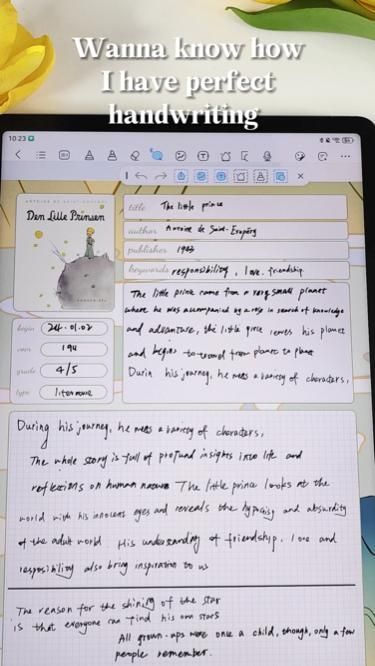 Wanna know how
I have perfect
handwriting
10:23
ANTOINE DE SAINT-EXUPÉRY
Den Lille Prinsen
title The little prince
author Antoine de Saint-Exupéry
publisher 1943
keywords responsibility, love. friendship.
The little prince came from a very small planet
where he was accompanied by a rose in search of knowledge
and adventure, the little prince leaves his planet
and begins to travel from planet to planet
Durin his journey, he meets a variety of characters,
begin 24.01.02
194
grade 4/5
type literature
During his journey, he meets a variety of characters,
The whole story is full of profound insights into life and
reflections on human nature The little prince looks at the
world with his innocent eyes and reveals the hypocrisy and absurdity
of the adult world. His understanding of friendship. love and
responsibility also bring inspiration to us
The reason for the shining of the star
is that everyone can find his own stars
All grown-ups were once a child, though, only a few
people remember.